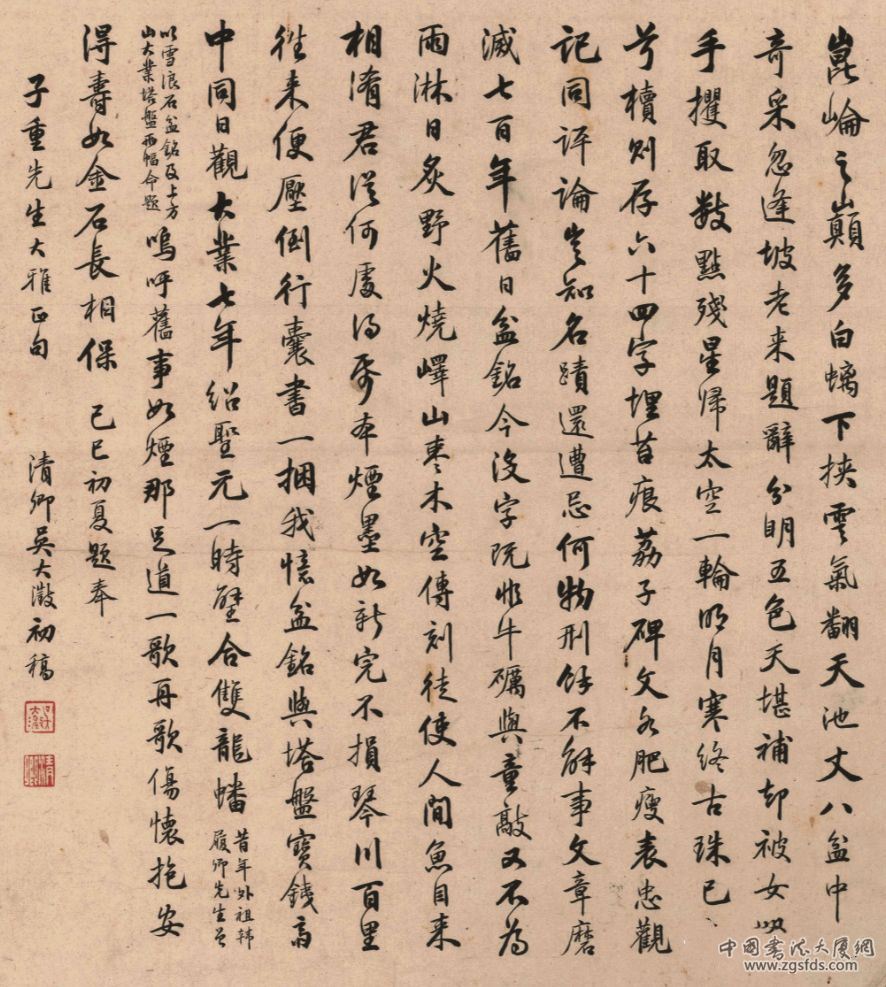 崑崙之巔多白螭下挾雲氣翻天池丈八盆中
奇采忽逢坡老来題辭分明五色天堪補却被女
手攫取數點殘星歸太空一輪明月寒終古珠已
兮櫝則存六十四字埋苔痕荔子碑文各肥瘦表忠觀
記同評論豈知名蹟還遭忌何物刑餘不解事文章磨
滅七百年舊日盆銘今沒字既非牛礪與童敲又不為
雨淋日炙野火燒嶧山棗木空傳刻徒使人間魚目来
相淆君從何處得本煙墨如新完不損琴川百里
往来便壓倒行囊書一捆我憶盆銘與塔盤寶鐵斋
中同日觀大業七年紹聖元一時壁合雙龍蟠昔年外祖韩
履卿先生曾
以雪浪石盆銘及上方
山大業塔盤兩幅命題嗚呼舊事如煙那足道一歌再歌傷懷抱安
得壽如金石長相保己巳初夏題奉
子重先生大雅正句
清卿吳大澂初稿
中國書法大厦網
www.zgsfds.com